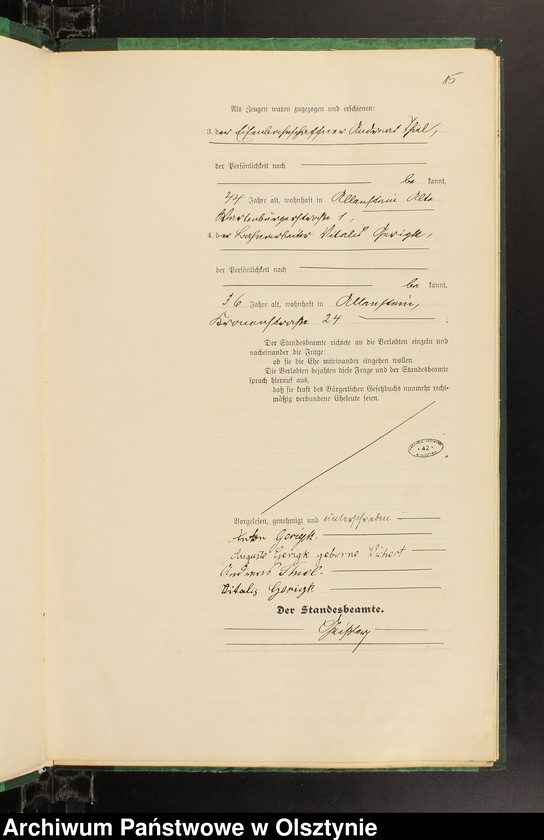 15
Als Zeugen waren zugezogen und erschienen:
3. der Eisenbahnschaffner Andreas Thiel,
der Persönlichkeit nach
be kannt,
44 Jahre alt, wohnhaft in Allenstein Alte
Wartenburgerstraße 1,
4. der Bahnarbeiter Vitalis Gerigk,
der Persönlichkeit nach
be kannt,
36 Jahre alt, wohnhaft in Allenstein,
Kronenstraße 24 ;
Der Standesbeamte richtete an die Verlobten einzeln und
nacheinander die Frage:
ob sie die Ehe miteinander eingehen wollen.
Die Verlobten bejahten diese Frage und der Standesbeamte
sprach hierauf aus,
daß sie kraft des Bürgerlichen Gesetzbuchs nunmehr recht-
mäßig verbundene Eheleute seien.
Vorgelesen, genehmigt und unterschrieben
Anton Gerigk.
Auguste Gerigk geborne
Andreas Thiel.
Vitalis Gerigk
Der Standesbeamte.
Archiwum Państwowe w Olsztynie